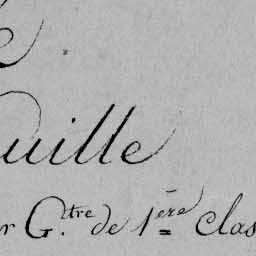 uille
r G.tre de 1ere clas